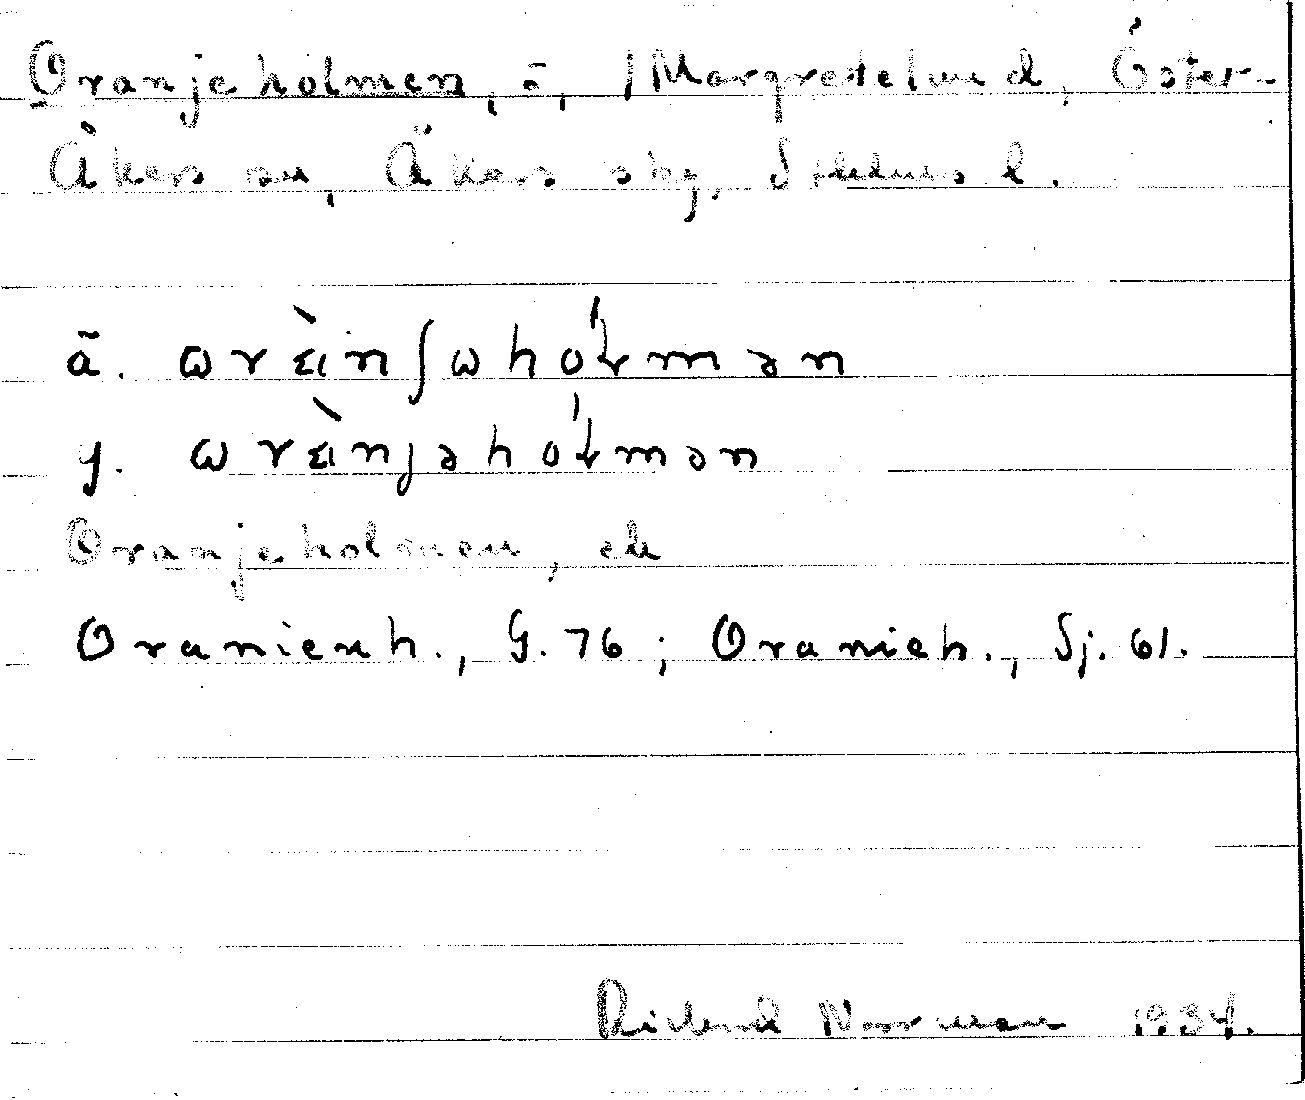 Oranjeholmen, ö, /Margretelund, Öster-
Åkers sn, Åkers skg, Sthlms l.
ä. ωrὲɩnʃωhólmən
y. ωrὲɩnjəhólmən
Oranjeholmen, ek
Oranienh., G. 76; Oranieh., Sj. 61.
Rickard Norrman 1934.